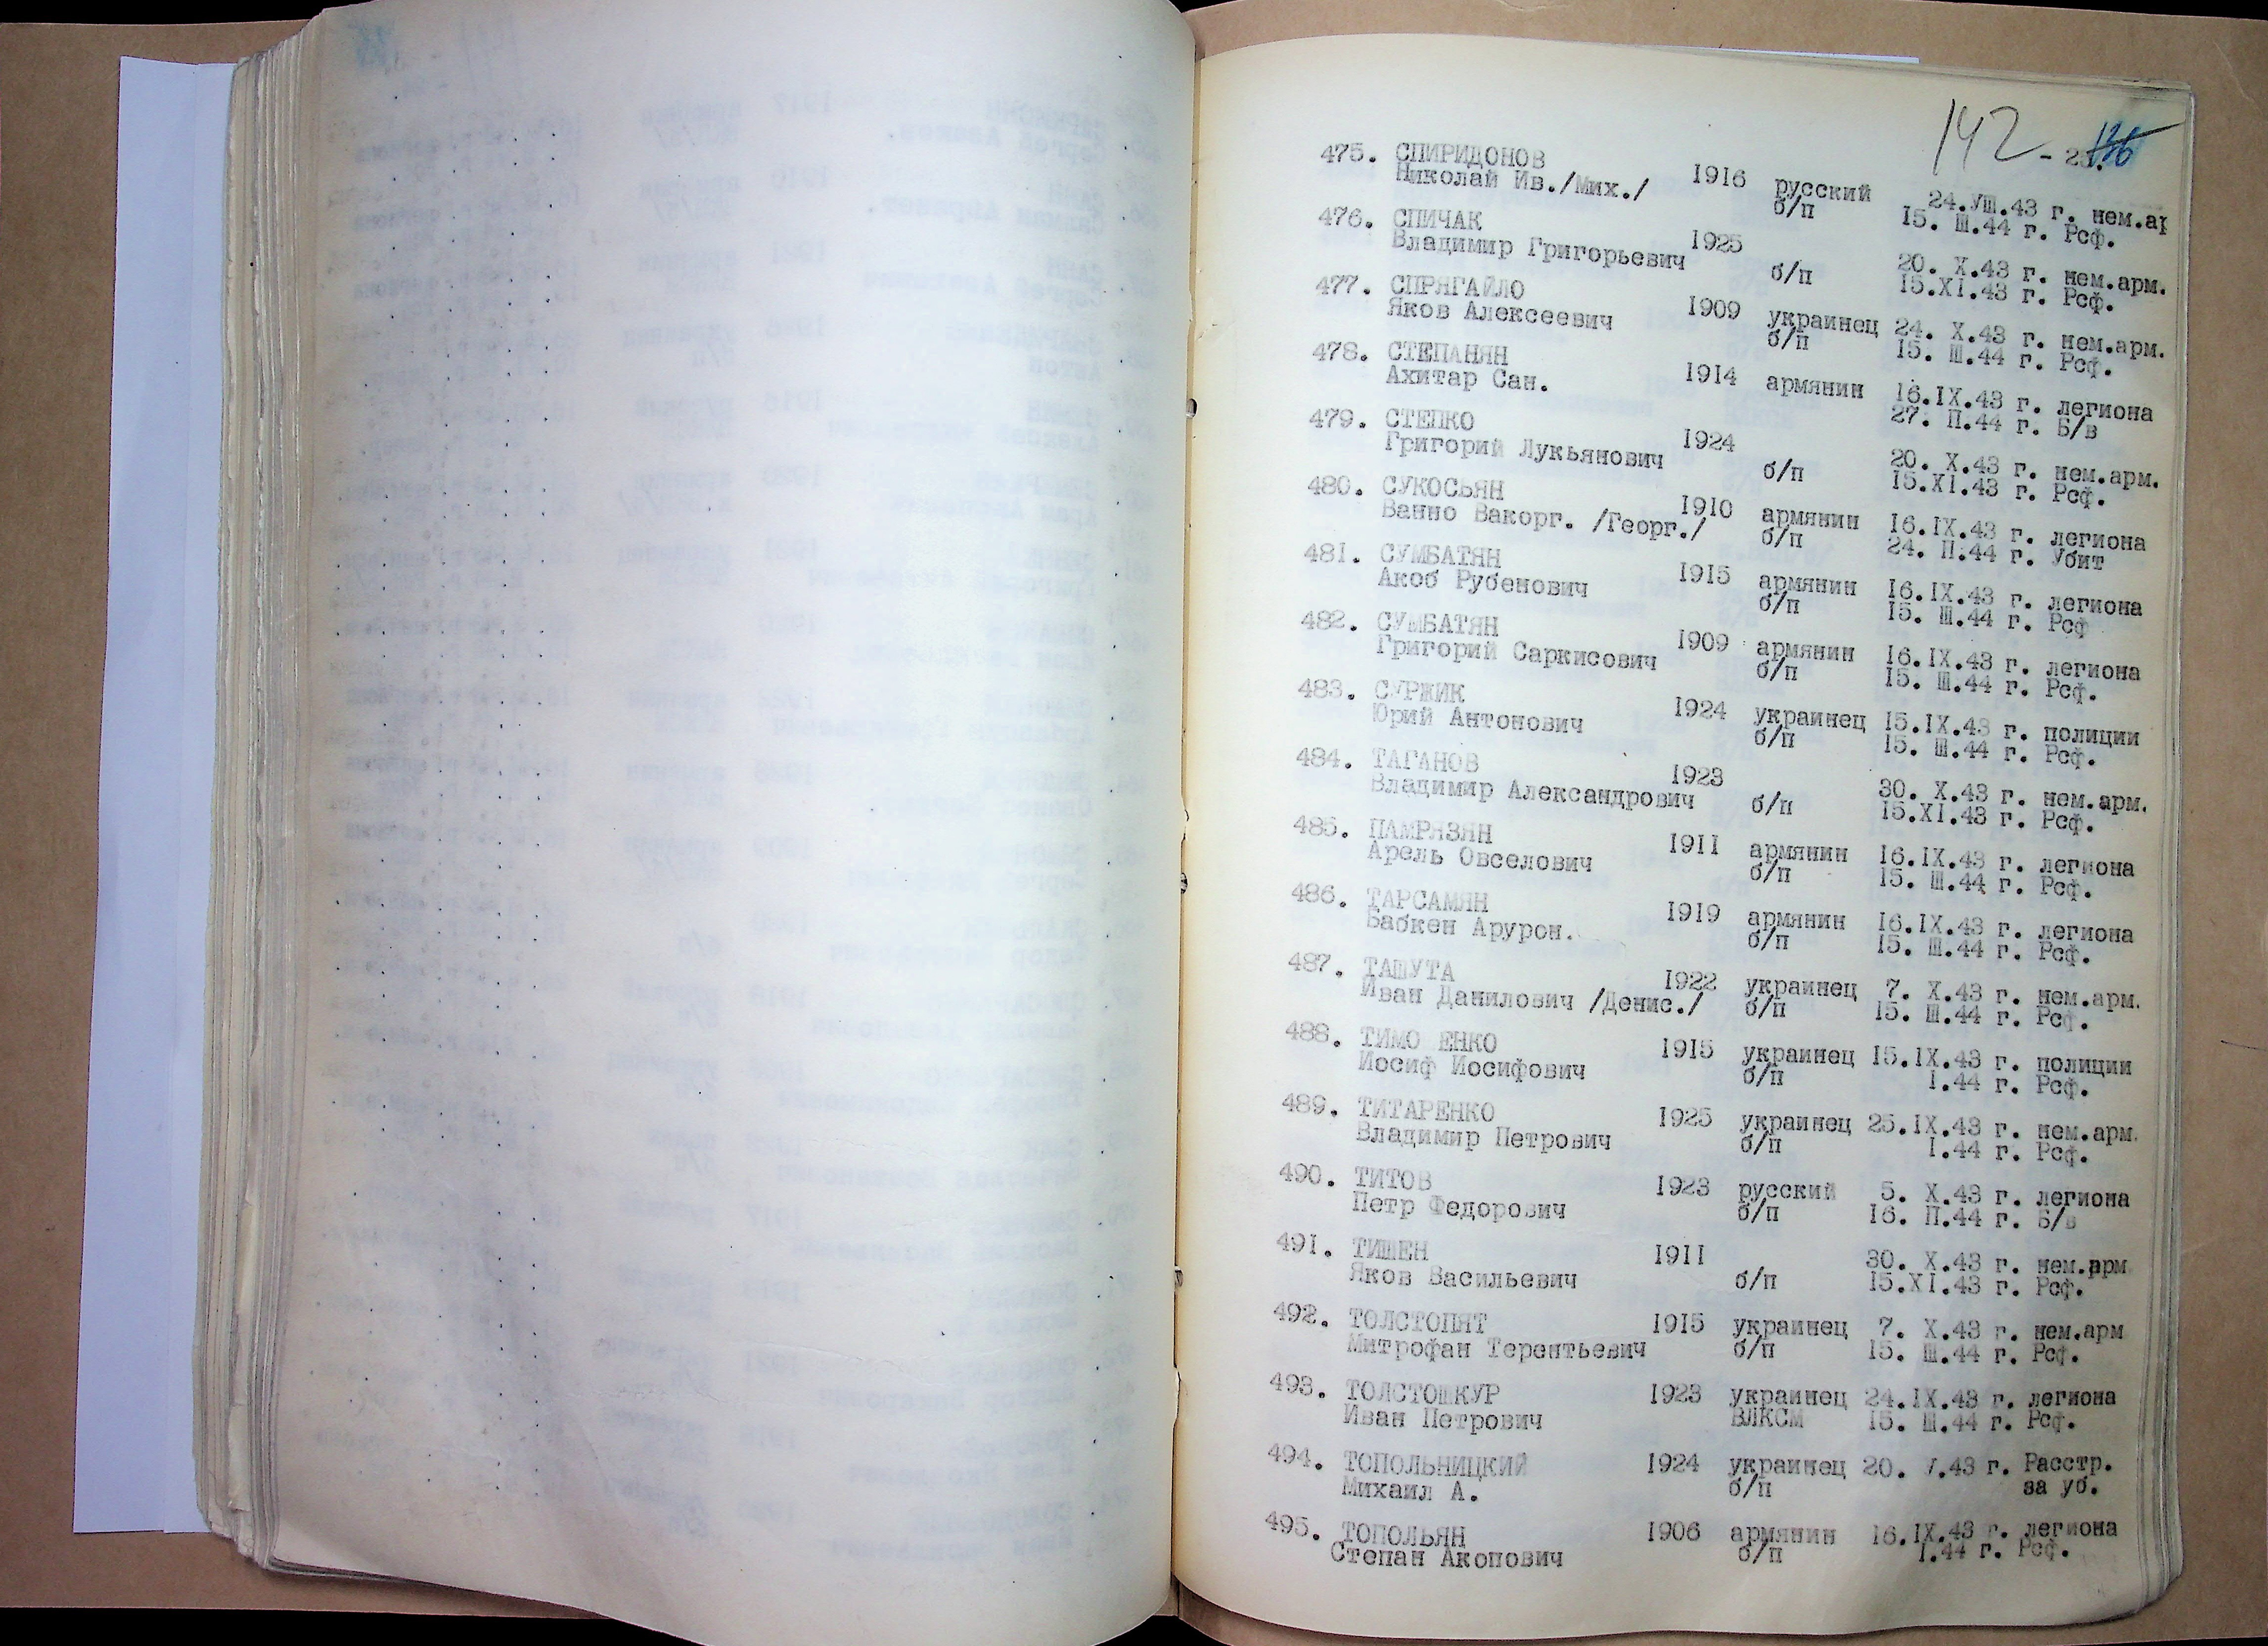 142
475. СПИРИДОНОВ 1916 русский 24.УШ.43 г. нем.ар
Николай Ив./Мих./ б/п 15. Ш.44 г. Рсф.
476. СПИЧАК 1925 20. Х.43 г. нем.арм.
Владимир Григорьевич б/п 15.XI.43 г. Рсф.
477. СПРЯГАЙЛО 1909 украинец 24. Х.43 г. нем.арм.
Яков Алексеевич б/п 15. Ш.44 г. Рсф.
478. СТЕПАНЯН 1914 армянин 16.IX.43 г. легиона
Ахитар Сан. 27. П.44 г. Б/в
479. СТЕПКО 1924 20. Х.43 г. нем.арм.
Григорий Лукьянович б/п 15.XI.43 г. Рсф.
480. СУКОСЬЯН 1910 армянин 16.IX.43 г. легиона
Ванно Вакорг. /Георг./ б/п 24. П.44 г. Убит
481. СУМБАТЯН 1915 армянин 16.IX.43 г. легиона
Акоб Рубенович б/п 15. Ш.44 г. Рсф
482. СУМБАТЯН 1909 армянин 16.IX.43 г. легиона
Григорий Саркисович б/п 15. Ш.44 г. Рсф.
483. СУРЖИК 1924 украинец 15.IX.43 г. полиции
Юрий Антонович б/п 15. Ш.44 г. Рсф.
484. ТАГАНОВ 1923 30. Х.43 г. нем.арм.
Владимир Александрович б/п 15.XI.43 г. Рсф.
485. ПАМРЯЗЯН 1911 армянин 16.IX.43 г. легиона
Арель Овселович б/п 15. Ш.44 г. Рсф.
486. ТАРСАМЯН 1919 армянин 16.IX.43 г. легиона
Бабкен Арурон. б/п 15. Ш.44 г. Рсф.
487. ТАШУТА 1922 украинец 7. Х.43 г. нем.арм.
Иван Данилович /Денис./ б/п 15. Ш.44 г. Рсф.
488. ТИМО ЕНКО 1915 украинец 15.IX.43 г. полиции
Иосиф Иосифович б/п I.44 г. Рсф.
489. ТИТАРЕНКО 1925 украинец 25.IX.43 г. нем.арм.
Владимир Петрович б/п I.44 г. Рсф.
490. ТИТОВ 1923 русский 5. Х.43 г. легиона
Петр Федорович б/п 16. П.44 г. Б/в
491. ТИШЕН 1911 30. Х.43 г. нем.арм
Яков Васильевич б/п 15.XI.43 г. Рсф.
492. ТОЛСТОПЯТ 1915 украинец 7. Х.43 г. нем.арм
Митрофан Терентьевич б/п 15. Ш.44 г. Рсф.
493. ТОЛСТОШКУР 1923 украинец 24.IX.43 г. легиона
Иван Петрович ВЛКСМ 15. Ш.44 г. Рсф.
494. ТОПОЛЬНИЦКИЙ 1924 украинец 20. .43 г. Расстр.
Михаил А. б/п за уб.
495. ТОПОЛЬЯН 1906 армянин 16.IX.43 г. легиона
Степан Акопович б/п I.44 г. Рсф.